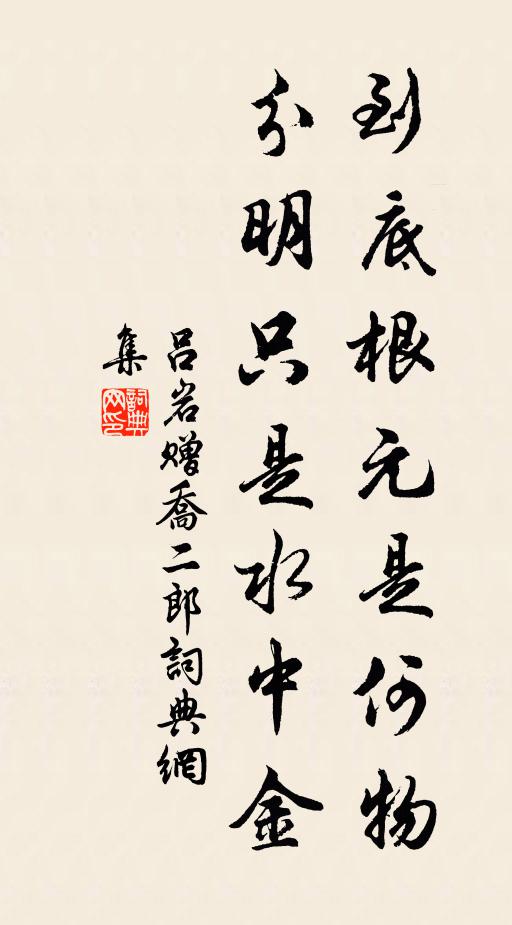 到底根元是何物
分明只是水中金
吕岩赠喬二郎詞典網
集
詞典
网印